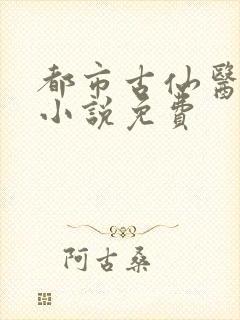 都市古仙醫
小說免費
阿古桑